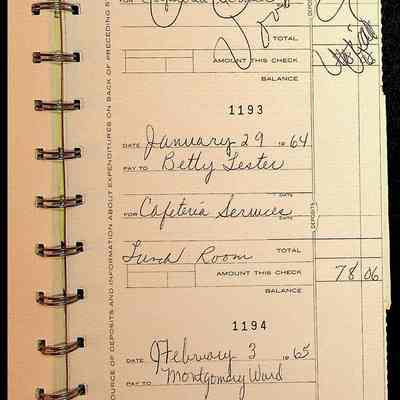 FOR Cafeteria Services
TOTAL
AMOUNT THIS CHECK
BALANCE
DEPOSITS
1193
DATE January 29 1964
PAY TO Betty Lester
DATE
FOR Cafeteria Services
DATE
DEPOSITS
Lunch Room TOTAL
AMOUNT THIS CHECK 78 06
BALANCE
1194
DATE February 3 1965
PAY TO Montgomery Ward
OURCE OF DEPOSITS AND INFORMATION ABOUT EXPENDITURES ON BACK OF PRECEDING